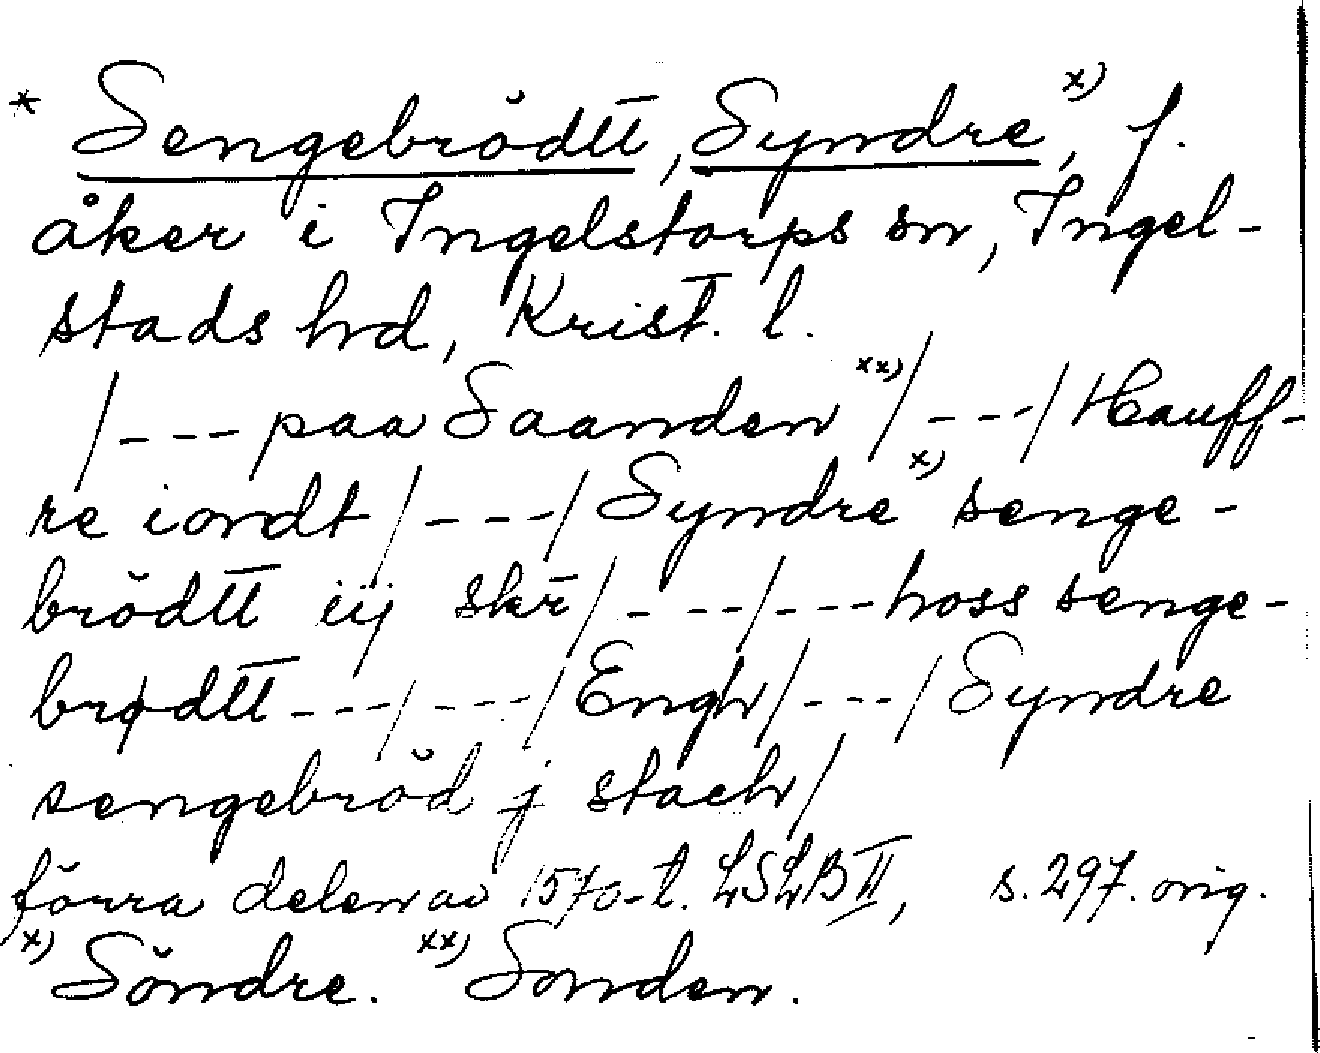 * Sengebrödtt, Syndre x), f.
åker i Ingelstorps sn, Ingel-
stads hd, Krist. l.
/--- paa Saanden xx)/---/ Hauff-
re iordt/---/Syndre x) senge-
brödtt iij skr̄/---/--- hoss senge-
brødtt---/---/Engh/---/Syndre
sengebröd j stach/
förra delen av 1570-t. LSLB II, s. 297. orig.
x) Söndre. xx) Sonden.